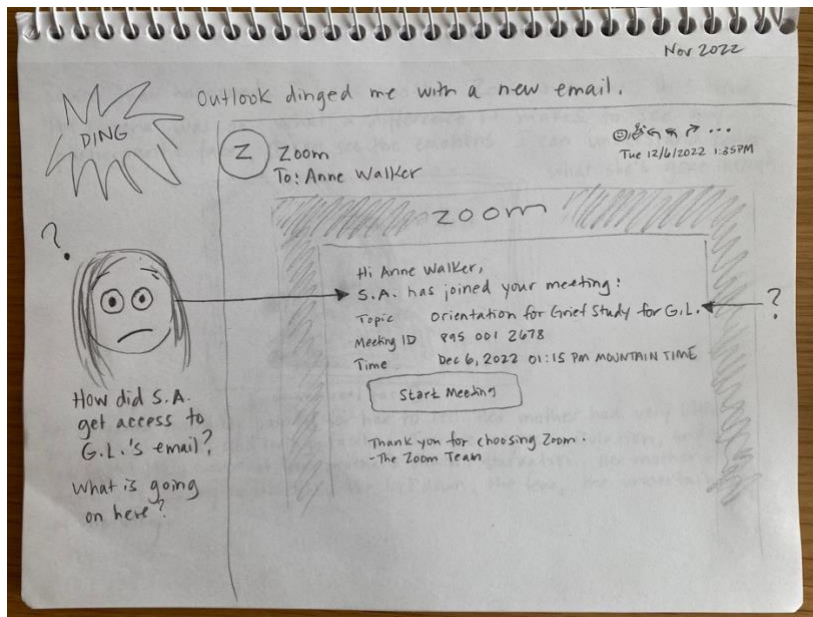 Nov 2022
Outlook dinged me with a new email.
DING
Z
Zoom
To: Anne Walker
Tue 12/6/2022 1:35PM
zoom
?
Hi Anne Walker,
S.A. has joined your meeting:
Topic Orientation for Grief Study for G.L.
?
Meeting ID 895 001 2678
Time Dec 6, 2022 01:15 PM MOUNTAIN TIME
Start Meeting
Thank you for choosing Zoom.
-The Zoom Team
How did S.A.
get access to
G.L.'s email?
What is going
on here?